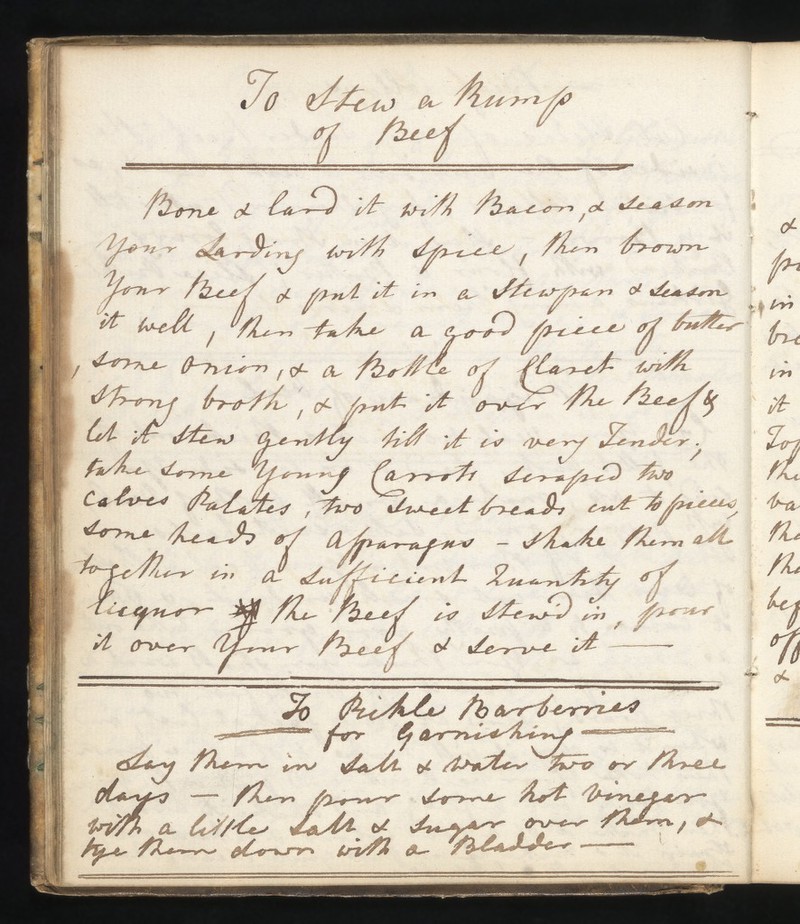 To Stew a Rump
of Beef
Bone & lard it with Bacon, & season
Your Larding with spice, then brown
Your Beef & put it in a Stewpan & season
it well, then take a good piece of butter
, some onion, & a Bottle of Claret with
strong broth, & put it over the Beef &
let it stew gently till it is very Tender;
take some Young Carrots scraped two
Calves Palates, two sweet breads cut to pieces,
some heads of asparagus - shake them all
together in a sufficient Quantity of
liequor the Beef is stew'd in, pour
it over Your Beef & serve it —
To Pickle Barberries
for Garnishing
Lay them in salt & water two or three
days — then pour some hot vinegar
with a little salt & sugar over them, &
tye them down with a Bladder —
&
in
in
it
&